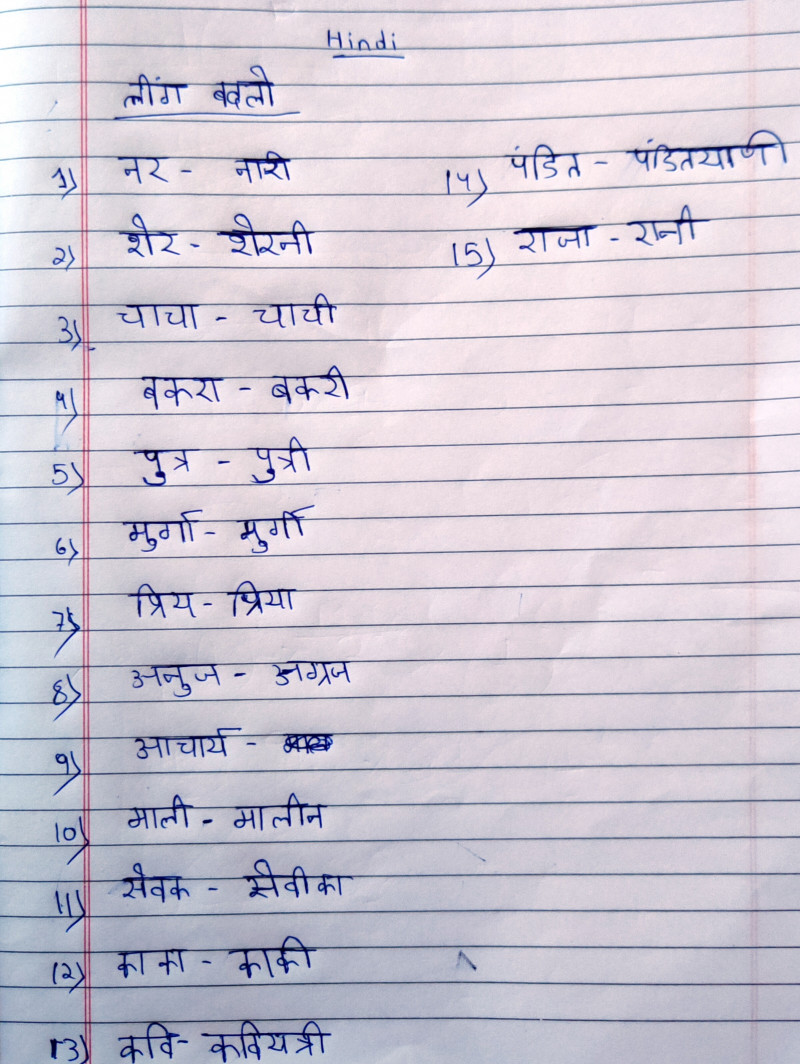 Hindi
लींग बदलो
1) नर - नारी
2) शेर - शेरनी
3) चाचा - चाची
4) बकरा - बकरी
5) पुत्र - पुत्री
6) मुर्गा - मुर्गी
7) प्रिय - प्रिया
8) अनुज - अग्रज
9) आचार्य -
10) माली - मालीन
11) सेवक - सेवीका
12) काका - काकी
13) कवि - कवियत्री
14) पंडित - पंडितयाणी
15) राजा - रानी